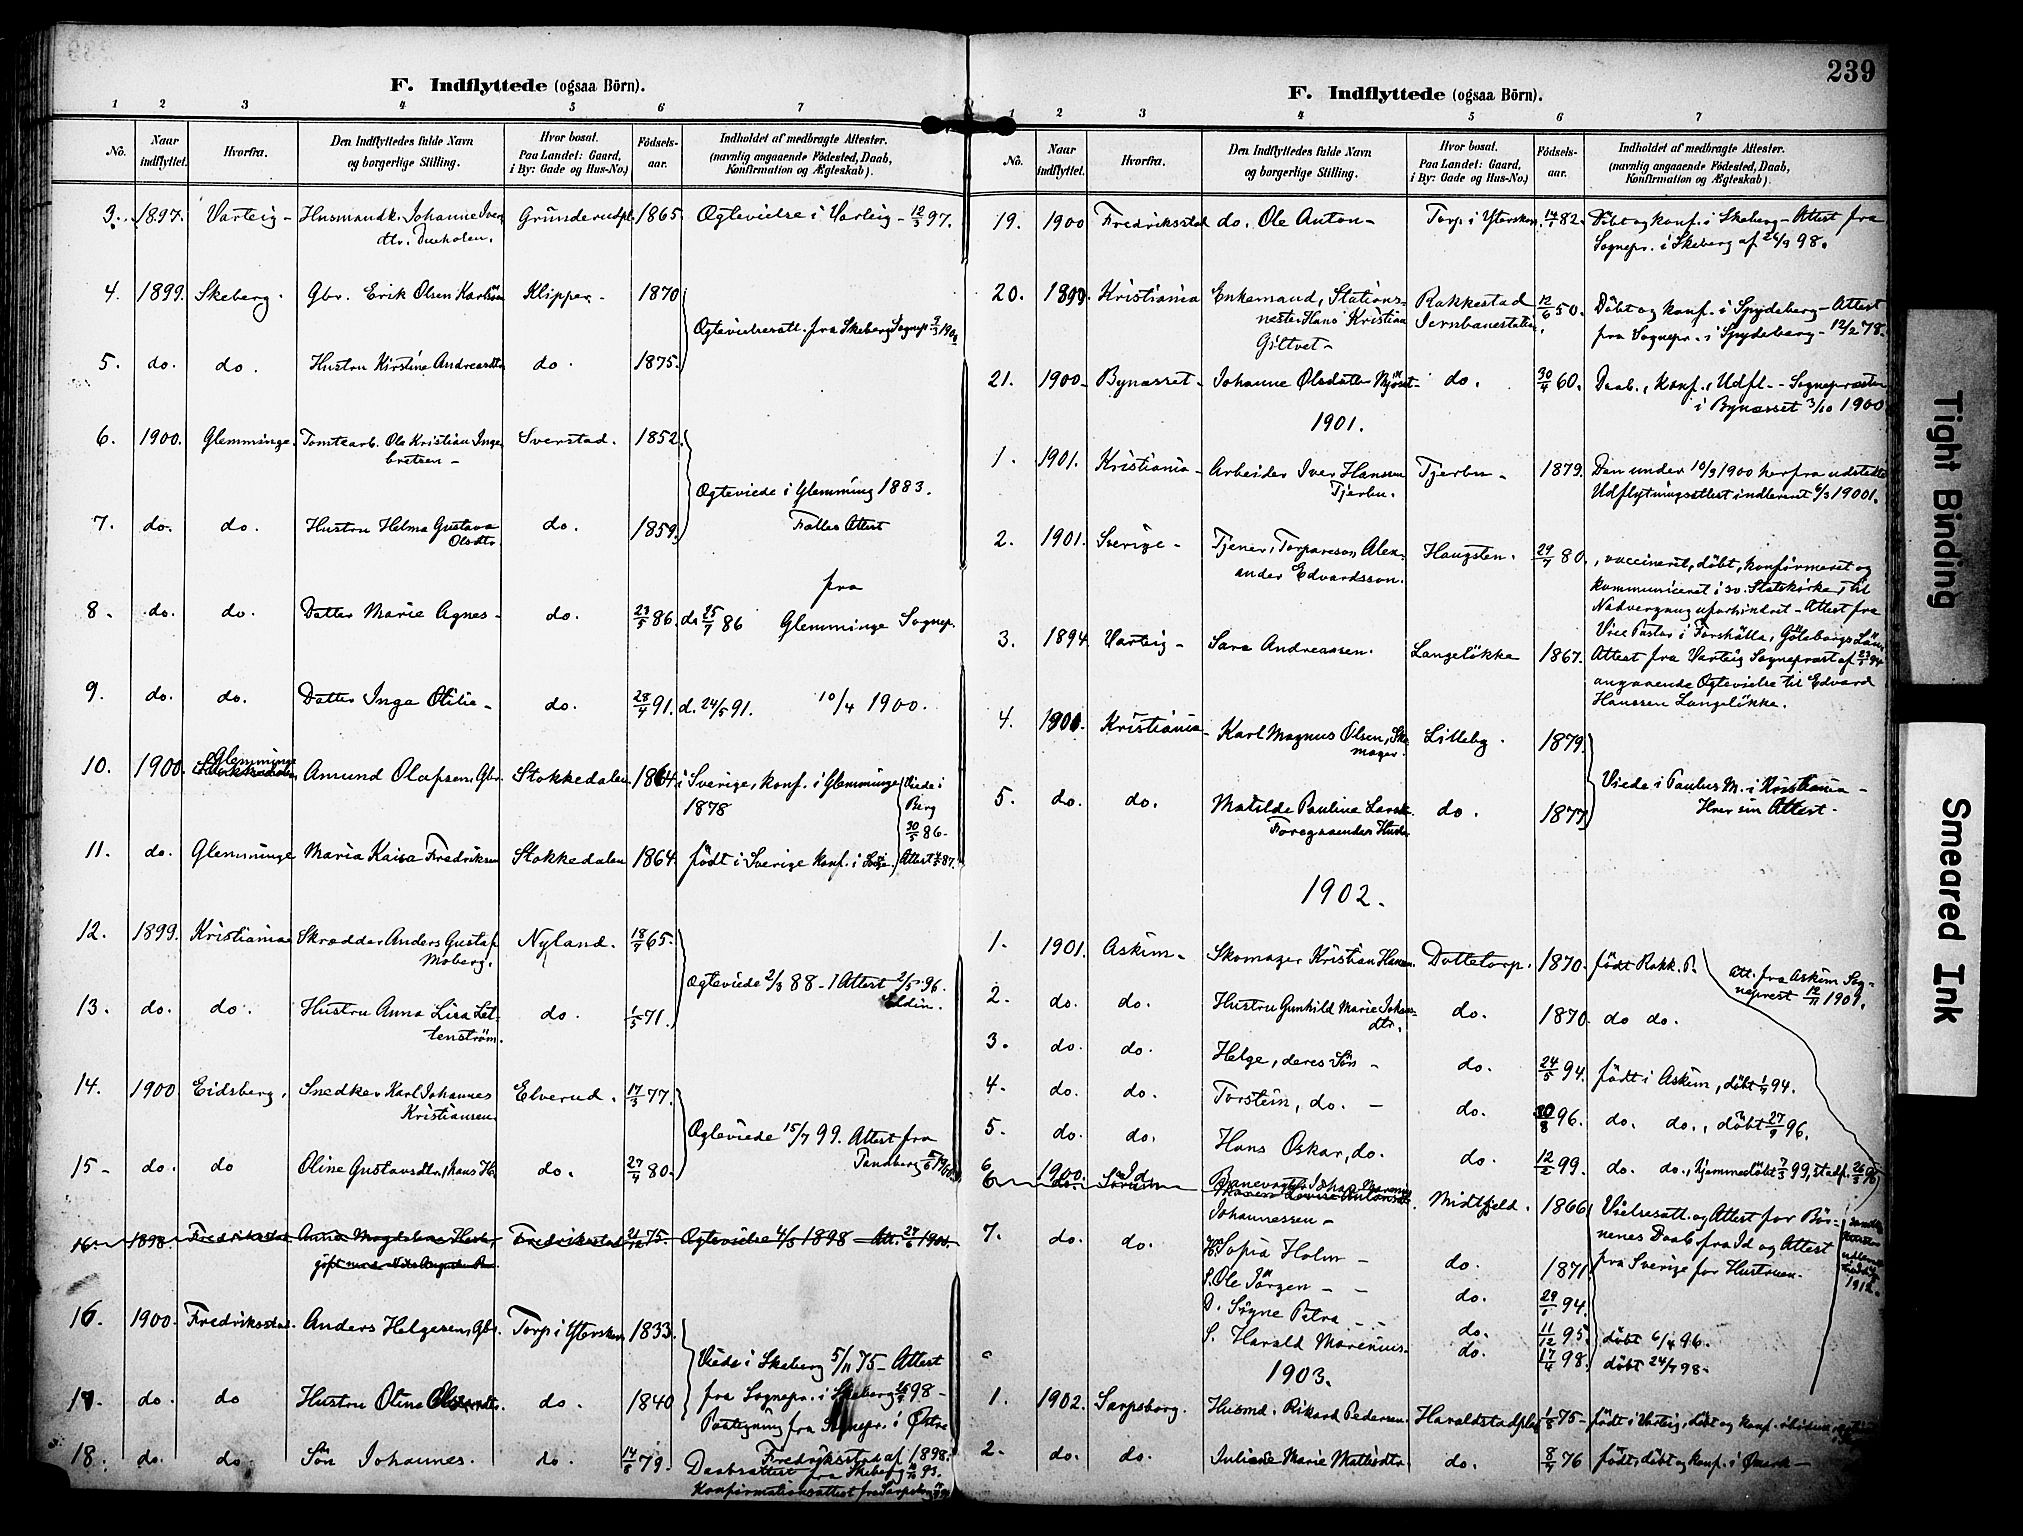 239
F. Indflyttede (ogsaa Börn).
1 2 3 4 5 6 7
No. Naar indflyttet. Hvorfra. Den Indflyttedes fulde Navn og borgerlige Stilling. Hvor bosat. Paa Landet: Gaard, i By: Gade og Hus-No.) Födsels-aar. Indholdet af medbragte Attester. (navnlig angaaende Födested, Daab, Konfirmation og Ægteskab).
3. 1897. Varteig - Husmandk. Johanne Iver Grünerudpl. 1865. Ogtevielse i Varteig - 12/3 97.
dtr.
4. 1899. Skeberg. Gbr. Erik Olsen Karlsön Klipper - 1870
Ogtevielsesatt. fra Skeberg Sognep.
5. do. do. Hustru Kirstine Andreasdtr do. 1875.
6. 1900. Glemminge. Tomtearb. Ole Kristian Inge Sverstad. 1852.
bretsen -
Ogteviede i Glemming 1883.
7. do. do. Hustru Helma Gustava do. 1859. Fælles Attest
Olsdtr.
fra
8. do. do. Datter Marie Agnes - do. 23/5 86. d. 25/7 86 Glemminge Sognep.
9. do. do. Datter Inga Otilie - do. 28/4 91. d. 24/5 91. 10/4 1900.
10. 1900. Glemminge Amund Olafsen, Gbr. Stokkedalen 1864. i Sverige, konf. i Glemminge Viede i
1878 Berg
30/5 86.
11. do. Glemminge Maria Kaisa Fredriksen Stokkedalen 1864. födt i Sverige konf. i Attest 87.
12. 1899. Kristiania Skrædder Anders Gustaf Nyland. 18/7 65.
Moberg.
Ogteviede 2/3 88 - Attest 2/5 96.
13. do. do. Hustru Anna Lisa Let- do. 1/5 71. Eldin.
tenström.
14. 1900 Eidsberg. Snedker Karl Johannes Elverud. 17/3 77.
Kristiansen.
Ogteviede 15/7 99. Attest fra
15 - do. do Oline Gustavsdtr, hans H. do. 27/4 80. Tandberg
16. 1898. Fredriksstad Anna Magdalene Fredriksstad 21/12 75. Ogtevielse 4/5 1898 - Att. 27/6 1900.
gift med Nils August
16 1900. Fredriksstad Anders Helgesen, Gbr. Torp i Yterskog 1833.
Viede i Skeberg 5/11 75 - Attest
fra Sognepr. i Skeberg 98 -
17. do. do Hustru Oline do. 1840 Paategning fra Sognepr. i Østre
Fredriksstad af 1898.
18. do. do. Sön Johannes. do. 14/6 79. Daabsattest fra Skeberg 93.
Konfirmationsattest fra Sarpsborg
F. Indflyttede (ogsaa Börn).
1 2 3 4 5 6 7
No. Naar indflyttet. Hvorfra. Den Indflyttedes fulde Navn og borgerlige Stilling. Hvor bosat. Paa Landet: Gaard, i By: Gade og Hus-No.) Födsels-aar. Indholdet af medbragte Attester. (navnlig angaaende Födested, Daab, Konfirmation og Ægteskab).
19. 1900 Fredriksstad do. Ole Anton - Torp i Yterskog. 14/7 82. Döbt og konf. i Skeberg - Attest fra
Sognepr. i Skeberg af 26/9 98.
20. 1899. Kristiania Enkemand, Stations- Rakkestad 12/6 50. Döbt og konf. i Spydeberg - Attest
mester Hans Kristian Jernbanestation. fra Sognepr. i Spydeberg - 12/2 78.
Giltvet -
21. 1900 - Bynæsset - Johanne Olsdatter Mjöset - do. 30/4 60. Daab., Konf., Udfl. - Sognepræsten
i Bynæsset 3/10 1900
1901.
1. 1901. Kristiania - Arbeider Iver Hansen Tjerbu - 1879. Den under 10/9 1900 herfra udstedte
Tjerbu. Udflytningsattest indleveret 6/3 1901.
2. 1901. Sverige - Tjener, Torpareson Alex- Haugsten. 29/7 80. , vaccineret, döbt, konfirmeret og
ander Edvardsson. kommuniceret i sv. Statskirke, til
Nadvergang uforhindret - Attest fra
Vice Pastor i Forshälla, Göteborgs Län
3. 1894 Varteig - Sara Andreassen. Langelökke 1867. Attest fra Varteig Sognepræst af 23/3 94
angaaende Ogtevielse til Edvard
Hanssen Langelökke.
4. 1901. Kristiania - Karl Magnus Olsen, Sko- Lilleby. 1879.
mager.
Viede i Paulus M. i Kristiania -
5. do. do. Matilde Pauline do. 1877. Hver sin Attest -
Foregaaendes Hustr.
1902.
1. 1901. Askim - Skomager Kristian Hansen. Dattetorp. 1870. födt Rakk. P. Att. fra Askim Sog-
neprest 12/11 1901.
2. do. do. Hustru Gunhild Marie Johans- do. 1870. do do.
dtr.
3. do. do. Helge, deres Sön - do. 24/5 94. födt i Askim, döbt 1/7 94.
4. do. do. Torstein, do. - do. 30/8 96. do. do., döbt 27/9 96.
5. do. do. Hans Oskar, do. do. 12/2 99. do. do., hjemmedöbt 7/3 99, stadf.
6 1900. Id. Banevogter Johan Marenius Midtfjeld. 1866 Vielsesatt. og Attest for Bör-
Johannessen - nenes Daab fra Id og Attest
7. do. do. H. Sofia Holm - do. 1871 fra Sverige for Hustruen.
S. Ole Jörgen - do. 29/1 94.
D. Signe Petra - do. 11/12 95. döbt 6/4 96.
S. Harald Marenius - do. 17/4 98. döbt 24/7 98.
1903.
1. 1902. Sarpsborg. Husmd. Rikard Pedersen. Haraldstadpladsen 1/8 75 - födt i Varteig, döbt og konf.
2. do. do. Juliane Marie Mathisdtr do. 8/7 76 födt, döbt og konf. i Ømark -
Tight Binding
Smeared Ink